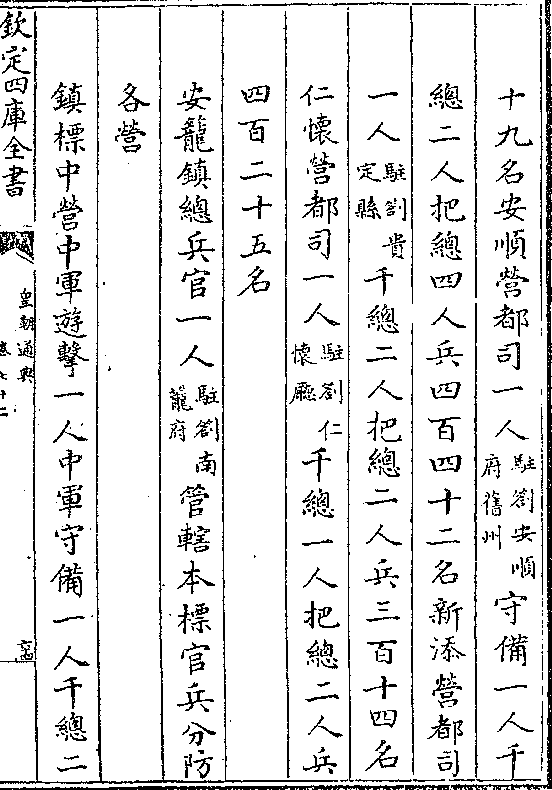 十九名安順營都司一人駐劄安順府舊州守備一人千
總二人把總四人兵四百四十二名新添營都司
一人駐劄貴定縣千總二人把總二人兵三百十四名
仁懷營都司一人駐劄仁懷廳千總一人把總二人兵
四百二十五名
安龍鎮總兵官一人駐劄南龍府管轄本標官兵分防
各營
鎮標中營中軍遊擊一人中軍守備一人千總二
欽定四庫全書
皇朝通典